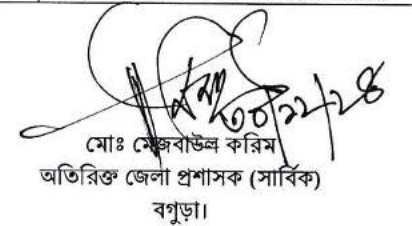 মোঃ মেজবাউল করিম
অতিরিক্ত জেলা প্রশাসক (সার্বিক)
বগুড়া।